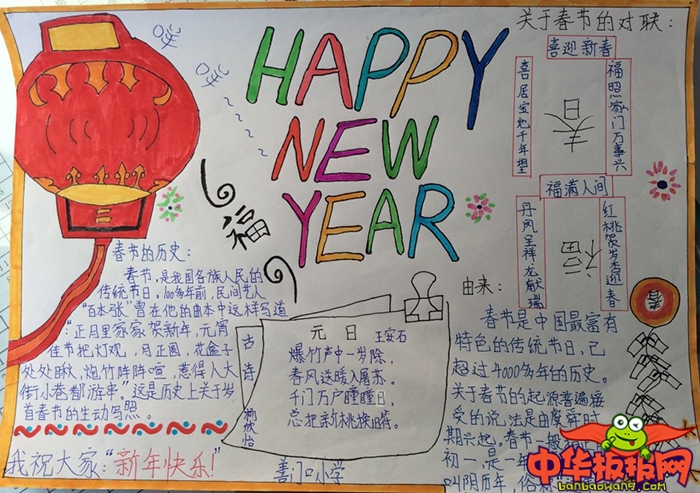 HAPPY
NEW
YEAR
福
关于春节的对联：
喜迎新春
福照家门万事兴
喜居宝地千年旺
春
福满人间
红桃贺岁杏迎春
丹凤呈祥龙献瑞
福
春节的历史：
春节，是我国各族人民的
传统节日，100多年前，民间艺人
“百本张”曾在他的曲本中这样写道
“正月里家家贺新年，元宵
佳节把灯观，月正圆，花盒子
处处瞅，炮竹阵阵喧，惹得人大
街小巷都游串”。这是历史上关于岁
首春节的生动写照。
我祝大家：“新年快乐！”
古诗
元日 王安石
爆竹声中一岁除，
春风送暖入屠苏。
千门万户瞳瞳日，
总把新桃换旧符。
善门口小学
由来：
春
春节是中国最富有
特色的传统节日，已
超过4000多年的历史。
关于春节的起源普遍接
受的说法是由虞舜时
期兴起。春节一般
初一，是一年
叫阴历年，俗
中华板报网
banbaowang.com